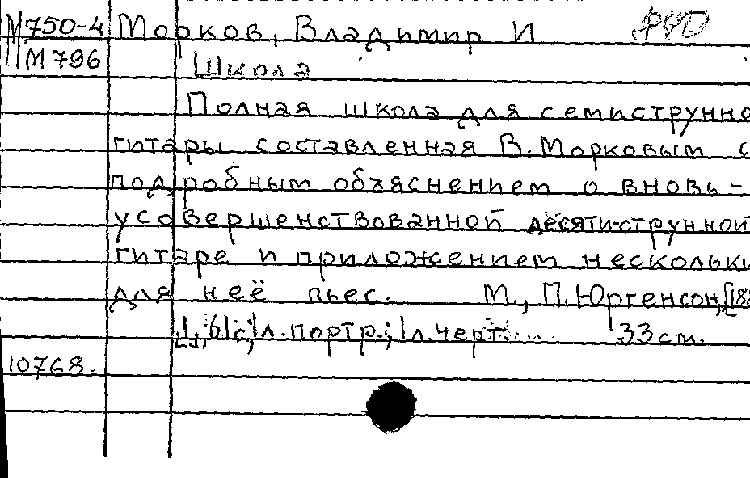 М750-4 Морков, Владимир И
М796 Школа
Полная школа для семиструнно
гитары составленная В. Морковым с
подробным объяснением о вновь-
усовершенствованной десяти-струнной
гитаре и приложением нескольки
для неё пьес. М., П. Юргенсон, [18
61с, 1л. портр.; 1 л. черт. 33 см.
10768.